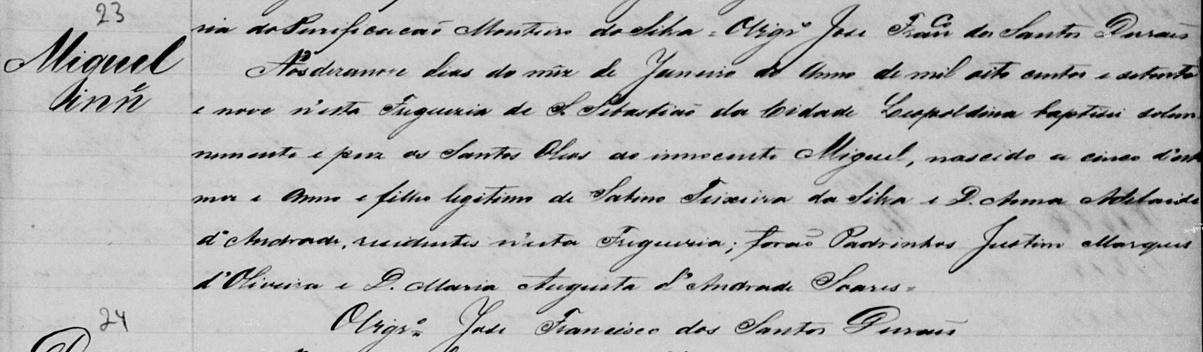 23
ria da Purificacaõ Monteiro da Silva - O Vigrº José Francº dos Santos Duraẽs
Miguel
innẽ
Aos dezanove dias do mez de Janeiro do Anno de mil oito centos e setenta
e nove n'esta Freguezia de S. Sebastião da Cidade Leopoldina baptisei solem
nemente e puz os Santos Oleos ao innocente Miguel, nascido a cinco d'este
mez e Anno e filho legitimo de Sabino Teixeira da Silva e D. Anna Adelaide
d'Andrade, residentes n'esta Freguezia; forão Padrinhos Justino Marques
d'Oliveira e D. Maria Augusta d'Andrade Soares -
24
O Vigrº José Francisco dos Santos Duraẽs